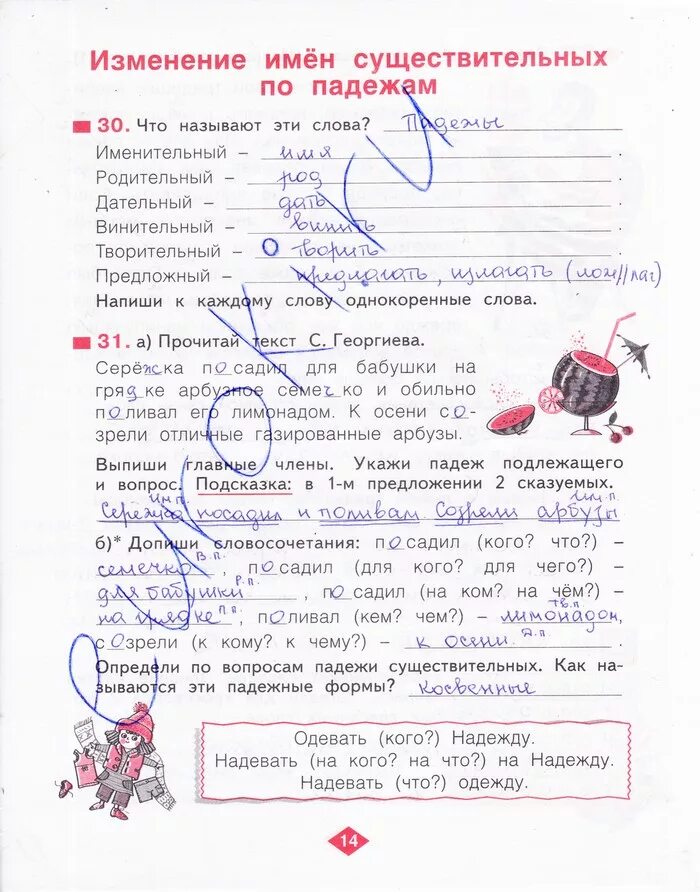 Изменение имён существительных
по падежам
30. Что называют эти слова? Падежы
Именительный – имя.
Родительный – род.
Дательный – дать.
Винительный – винить.
Творительный – творить.
Предложный – предлагать, излагать (лож//лаг)
Напиши к каждому слову однокоренные слова.
31. а) Прочитай текст С. Георгиева.
Серёжка посадил для бабушки на
грядке арбузное семечко и обильно
поливал его лимонадом. К осени со-
зрели отличные газированные арбузы.
Выпиши главные члены. Укажи падеж подлежащего
и вопрос. Подсказка: в 1-м предложении 2 сказуемых.
им.п. им.п.
Серёжка посадил и поливал Созрели арбузы
б)* Допиши словосочетания: посадил (кого? что?) –
семечко В.п., посадил (для кого? для чего?) –
для бабушки Р.п., посадил (на ком? на чём?) –
на грядке П.п.; поливал (кем? чем?) – лимонадом, Тв.п
созрели (к кому? к чему?) – к осени Д.п.
Определи по вопросам падежи существительных. Как на-
зываются эти падежные формы? косвенные
Одевать (кого?) Надежду.
Надевать (на кого? на что?) на Надежду.
Надевать (что?) одежду.
14